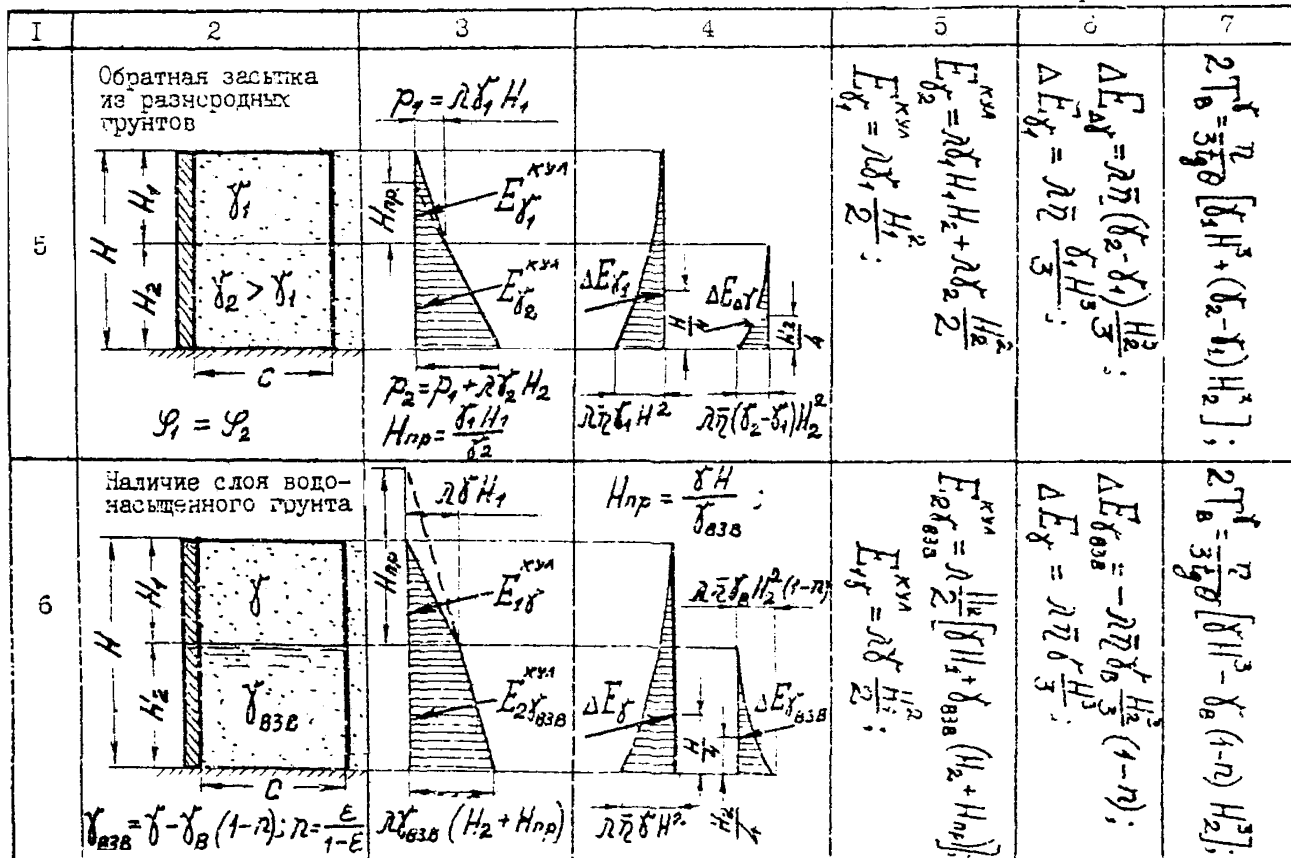 I 2 3 4 5 6 7
5
Обратная засыпка
из разнородных
грунтов
H
H₁
H₂
γ₁
γ₂ > γ₁
C
φ₁ = φ₂
p₁ = λγ₁H₁
Hпр
E^кул_γ₁
E^кул_γ₂
p₂ = p₁ + λγ₂H₂
Hпр = γ₁H₁/γ₂
ΔE_γ₁
H/4
ΔE_Δγ
H₂/4
λη̄γ₁H²
λη̄(γ₂-γ₁)H₂²
E^кул_γ₁ = λγ₁ H₁²/2;
E^кул_γ₂ = λγ₁H₁H₂ + λγ₂ H₂²/2
ΔE_γ₁ = λη̄ γ₁H³/3;
ΔE_Δγ = λη̄(γ₂-γ₁) H₂³/3
2T_в^γ = η/3tgθ [γ₁H³ + (γ₂-γ₁)H₂³];
6
Наличие слоя водо-
насыщенного грунта
H
H₁
H₂
γ
γвзв
C
γвзв = γ - γв (1-n); n = ε/1-ε
λγH₁
Hпр
E^кул_1γ
E^кул_2γвзв
λγвзв (H₂ + Hпр)
Hпр = γH/γвзв ;
λη̄γвH₂²(1-n)
ΔE_γ
H/4
ΔE_γвзв
H₂/4
λη̄γH²
E^кул_1γ = λγ H₁²/2;
E^кул_2γвзв = λ H₂/2 [γH₁ + γвзв (H₂ + Hпр)];
ΔE_γ = λη̄ γH³/3;
ΔE_γвзв = -λη̄γв H₂³/3 (1-n);
2T_в^γ = η/3tgθ [γH³ - γв (1-n) H₂³];